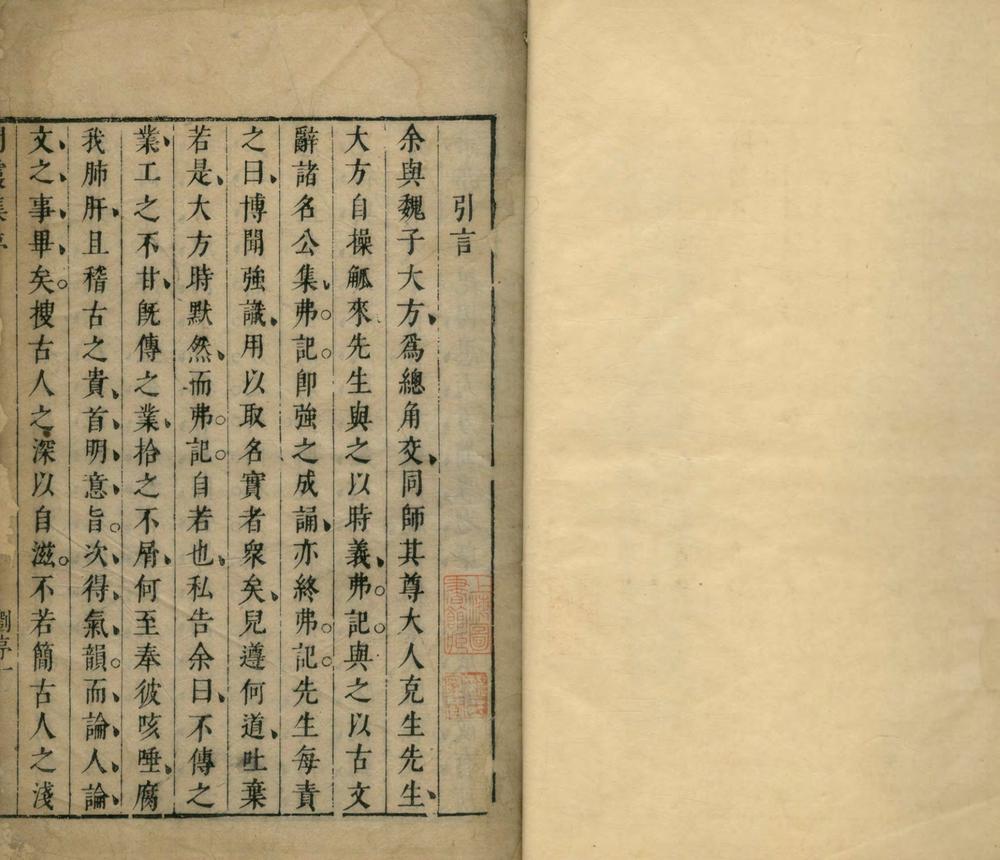 引言
余與魏子大方、爲總角交、同師其尊大人克生先生、
大方自操觚來先生與之以時義、弗。記。與之以古文
辭諸名公集、弗。記。卽強之成誦、亦終弗。記。先生每責
之曰、博聞強識、用以取名實者衆矣、兒遵何道、吐棄
若是、大方時默然、而弗。記。自若也、私告余曰、不傳之
業、工之不甘、旣傳之業、拾之不屑、何至奉彼咳唾、腐
我肺肝、且稽古之貴、首、明、意、旨。次、得、氣、韻。而、論、人、論、
文、之、事、畢、矣。搜古人之深以自滋。不若簡古人之淺